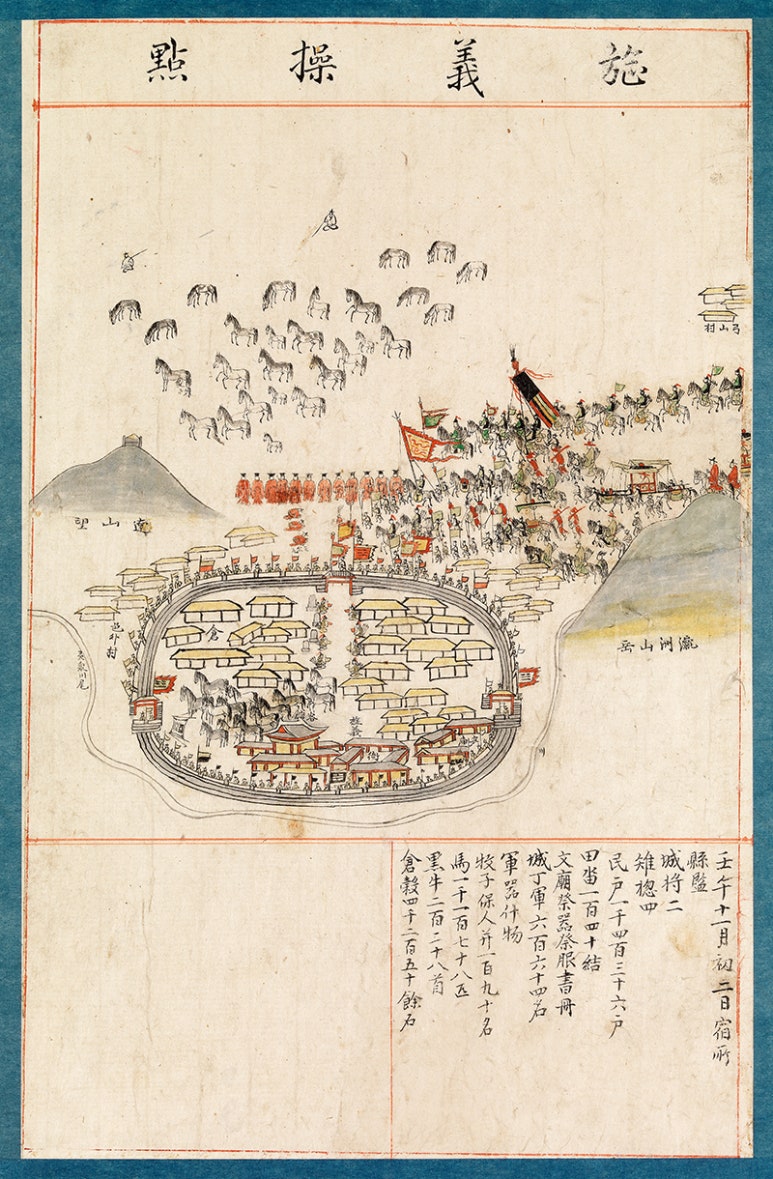 旌義操點
弓山村
達山望
瀛洲山岳
倉
旌義
衙
壬午十一月初二日宿所
縣監
城將二
雉摠四
民戶一千四百三十六戶
田畓一百四十結
文廟祭器祭服書冊
城丁軍六百六十四名
軍器什物
牧子保人并一百九十名
馬一千一百七十八匹
黑牛二百二十八首
倉穀四千二百五十餘石